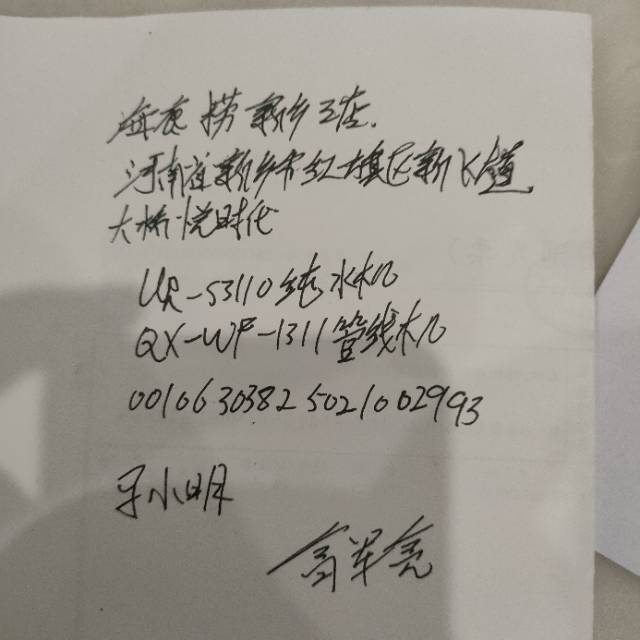 海底捞新乡2店.
河南省新乡市红旗区新飞大道
大桥悦时代
UR-53110纯水机
QX-WF-1311管线机
00106303825021002993
小明
军亮